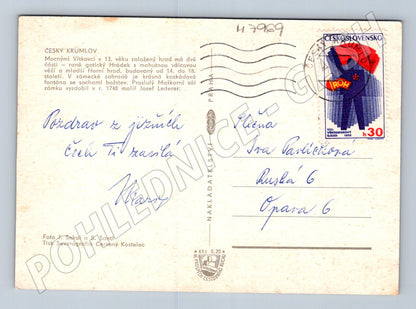 H 7969
ČESKÝ KRUMLOV
Mocnými Vítkovci v 13. věku založený hrad má dvě
části – raně gotický Hrádek s mohutnou válcovou
věží a mladší Horní hrad, budovaný od 14. do 18.
století. V zámecké zahradě je krásná kaskádová
fontána se sochami božstev. Proslulý Maškarní sál
zámku vyzdobil v r. 1748 malíř Josef Lederer.
Pozdrav z jižních
Čech Ti zasílá
Foto J. Sekal a B. Šantí
Tisk Severografia Červený Kostelec
NAKLADATELSTVÍ PRESSFOTO
ČESKOSLOVENSKO
ROH
30
Slečna
Iva Pavlíčková
Ruská 6
Opava 6
POHLEDNICE